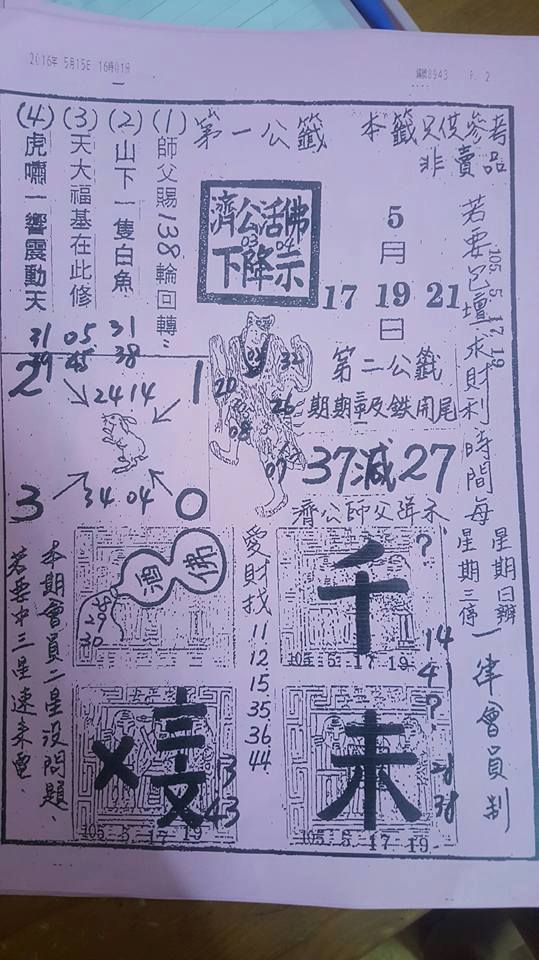 2016年 5月15日 16時01分
編號8943 P. 2
本籤只供參考
非賣品
第一公籤
(1)師父賜138輪回轉"
(2)山下一隻白魚
(3)天大福基在此修
(4)虎嘯一響震動天
濟公活佛
03 04
下降示
5
月
17 19 21
日
若要包壇求財利時間每
105. 5. 17. 19
星期日辦
星期三停
一律會員制
第二公籤
期期三叉鉄開尾
37減27
濟公師父降示
31 05 31
45 38
2 1
24 14
34 04
3 0
32
20
26
08
07
佛
酒
29
30
愛財找
11
12
15
35
36
44
千
?
14
41
?
105. 5. 17. 19
未
38
105. 5. 17. 19
X
13
43
105. 5. 17. 19
本期會員二星沒問題、
若要中三星速來電、